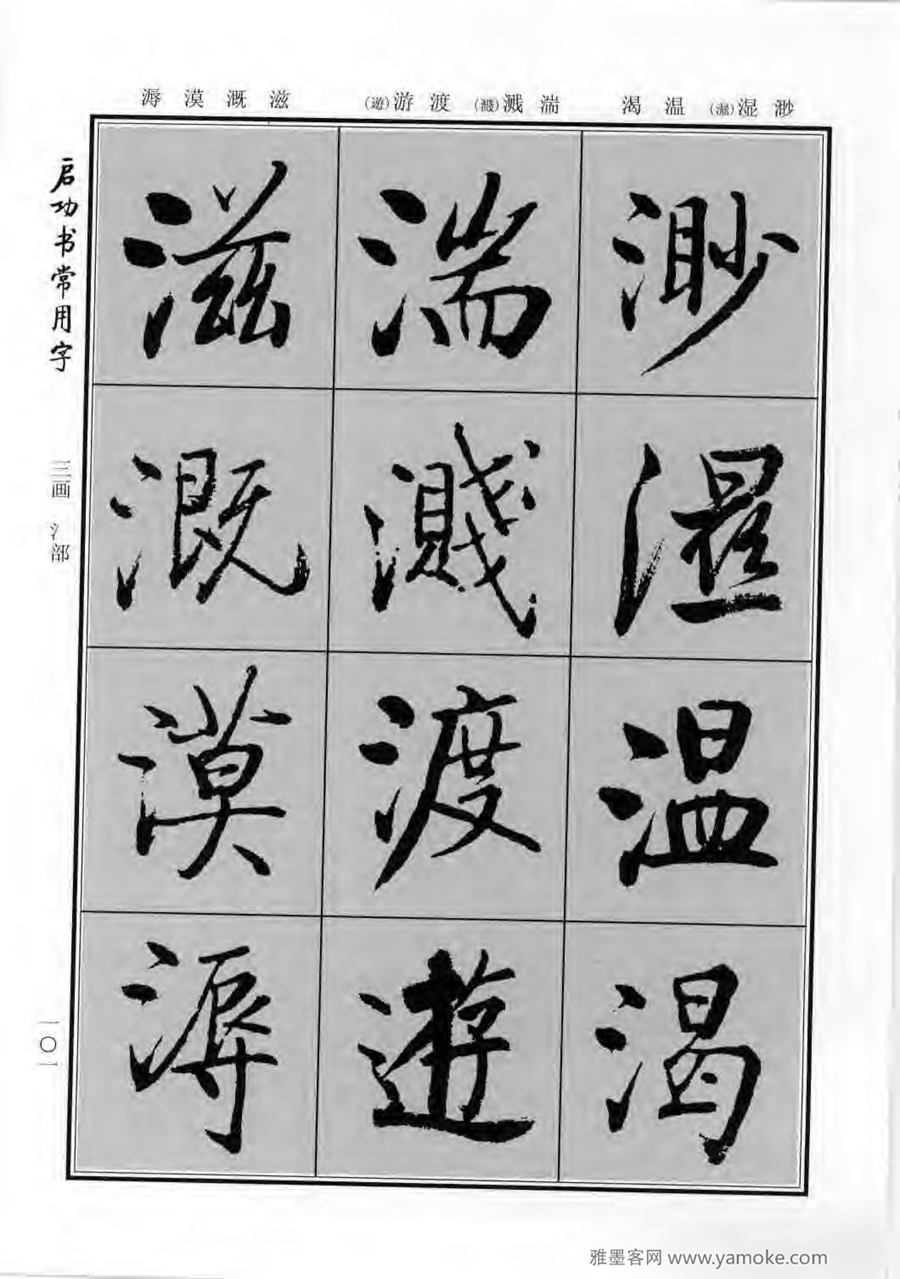 渺湿(濕)温渴 湍溅(濺)渡游(遊) 滋溉漠溽
渺濕温渴
湍濺渡遊
滋溉漠溽
启功书常用字
三画 氵部
一〇一
雅墨客网 www.yamoke.com